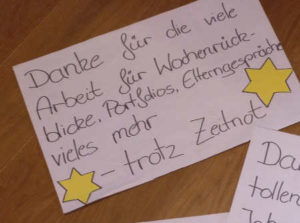 Danke für die viele
Arbeit für Wochenrück-
blicke, Portfolios, Elterngespräche
vieles mehr
- trotz Zeitnot
Da
tollen